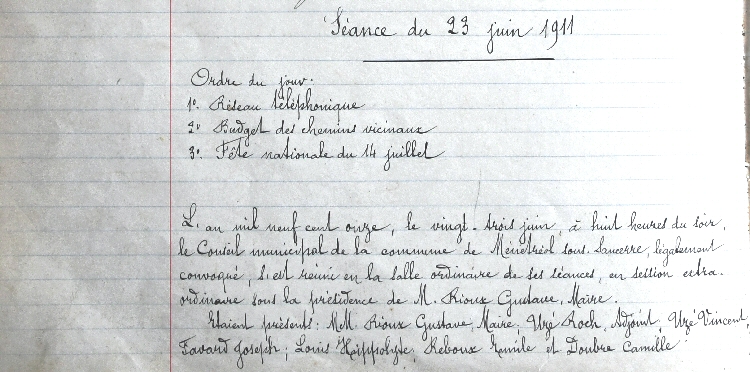 Séance du 23 juin 1911
Ordre du jour.
1° Réseau téléphonique
2° Budget des chemins vicinaux
3° Fête nationale du 14 juillet
L'an mil neuf cent onze, le vingt-trois juin, à huit heures du soir,
le Conseil municipal de la commune de Ménétréol sous Sancerre, légalement
convoqué, s'est réuni en la salle ordinaire de ses séances, en session extra-
ordinaire sous la présidence de M. Rioux Gustave, Maire.
Etaient présents: M.M. Rioux Gustave, Maire, Uzé Roch, Adjoint, Uzé Vincent,
Favard Joseph; Louis Hippolyte, Reboux Emile et Doubre Camille